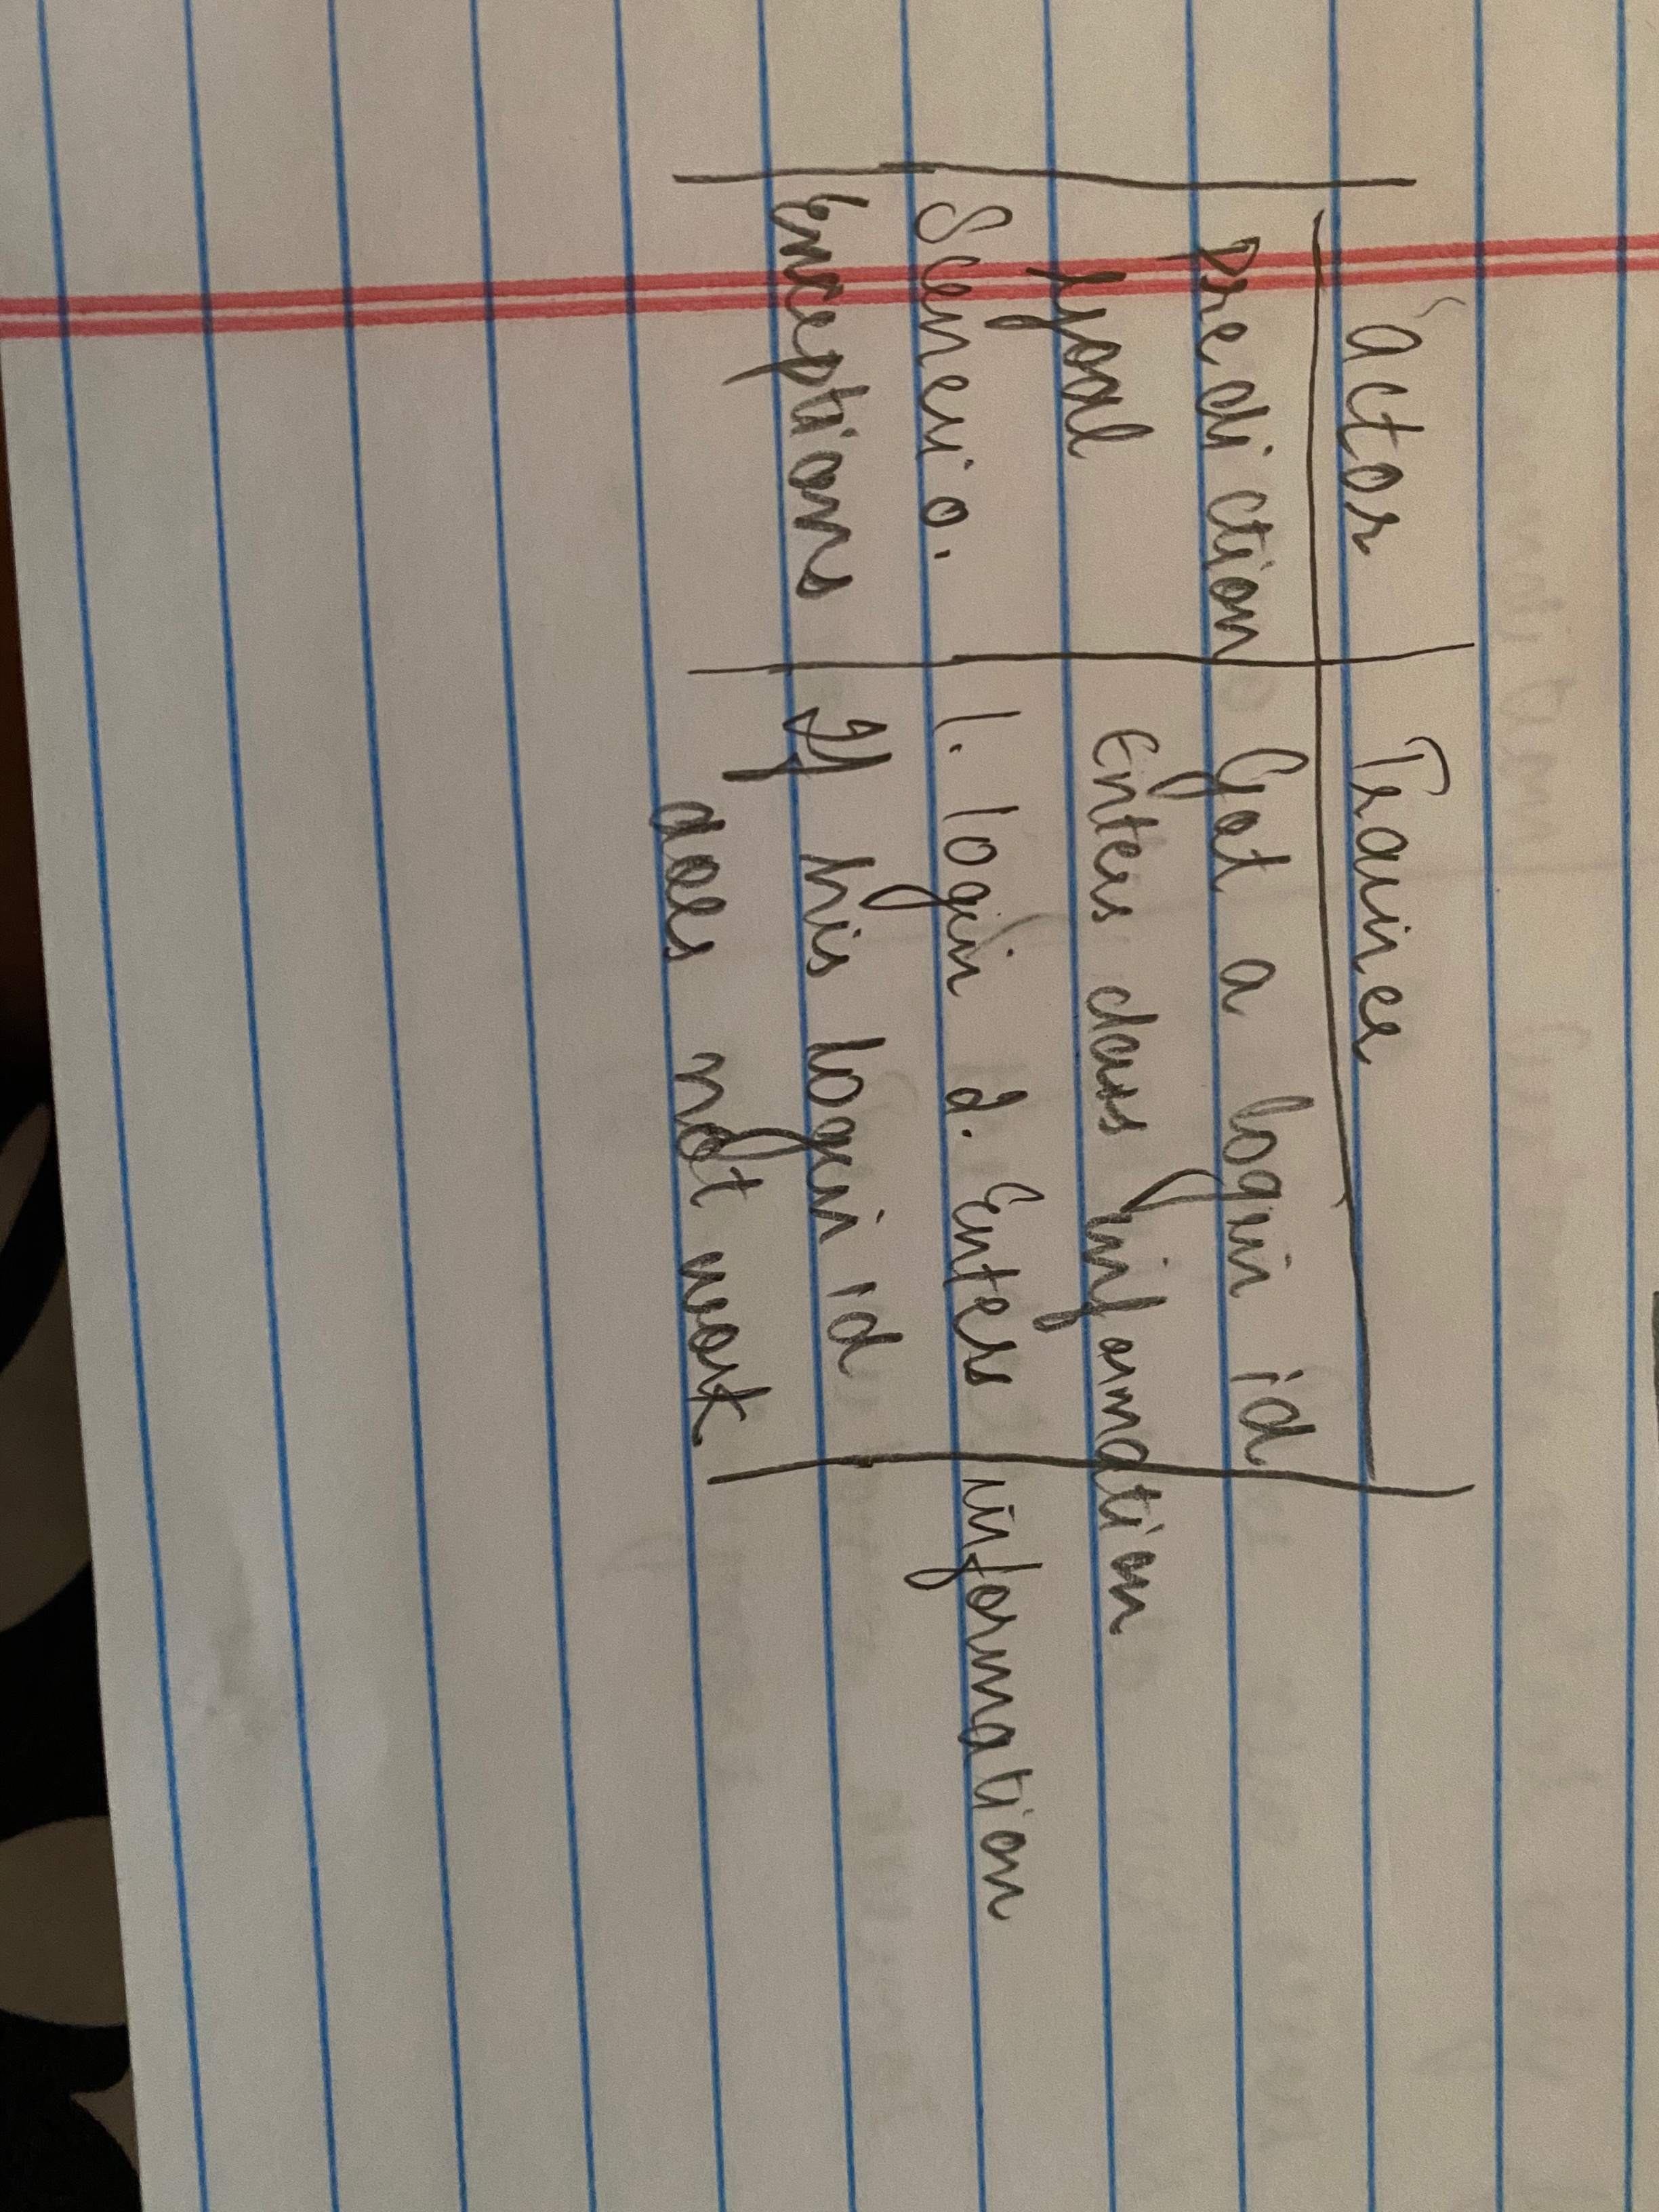 actor Trainer
Prediction Get a login id
goal Enters class information
Scenerio. 1. login 2. Enters information
Enceptions If his login id
does not work